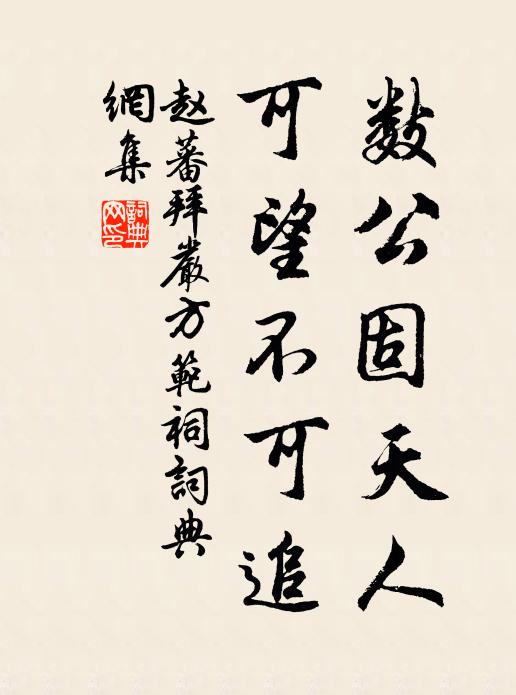 数公固天人
可望不可追
赵蕃拜嚴方範祠詞典
網集
詞典網印